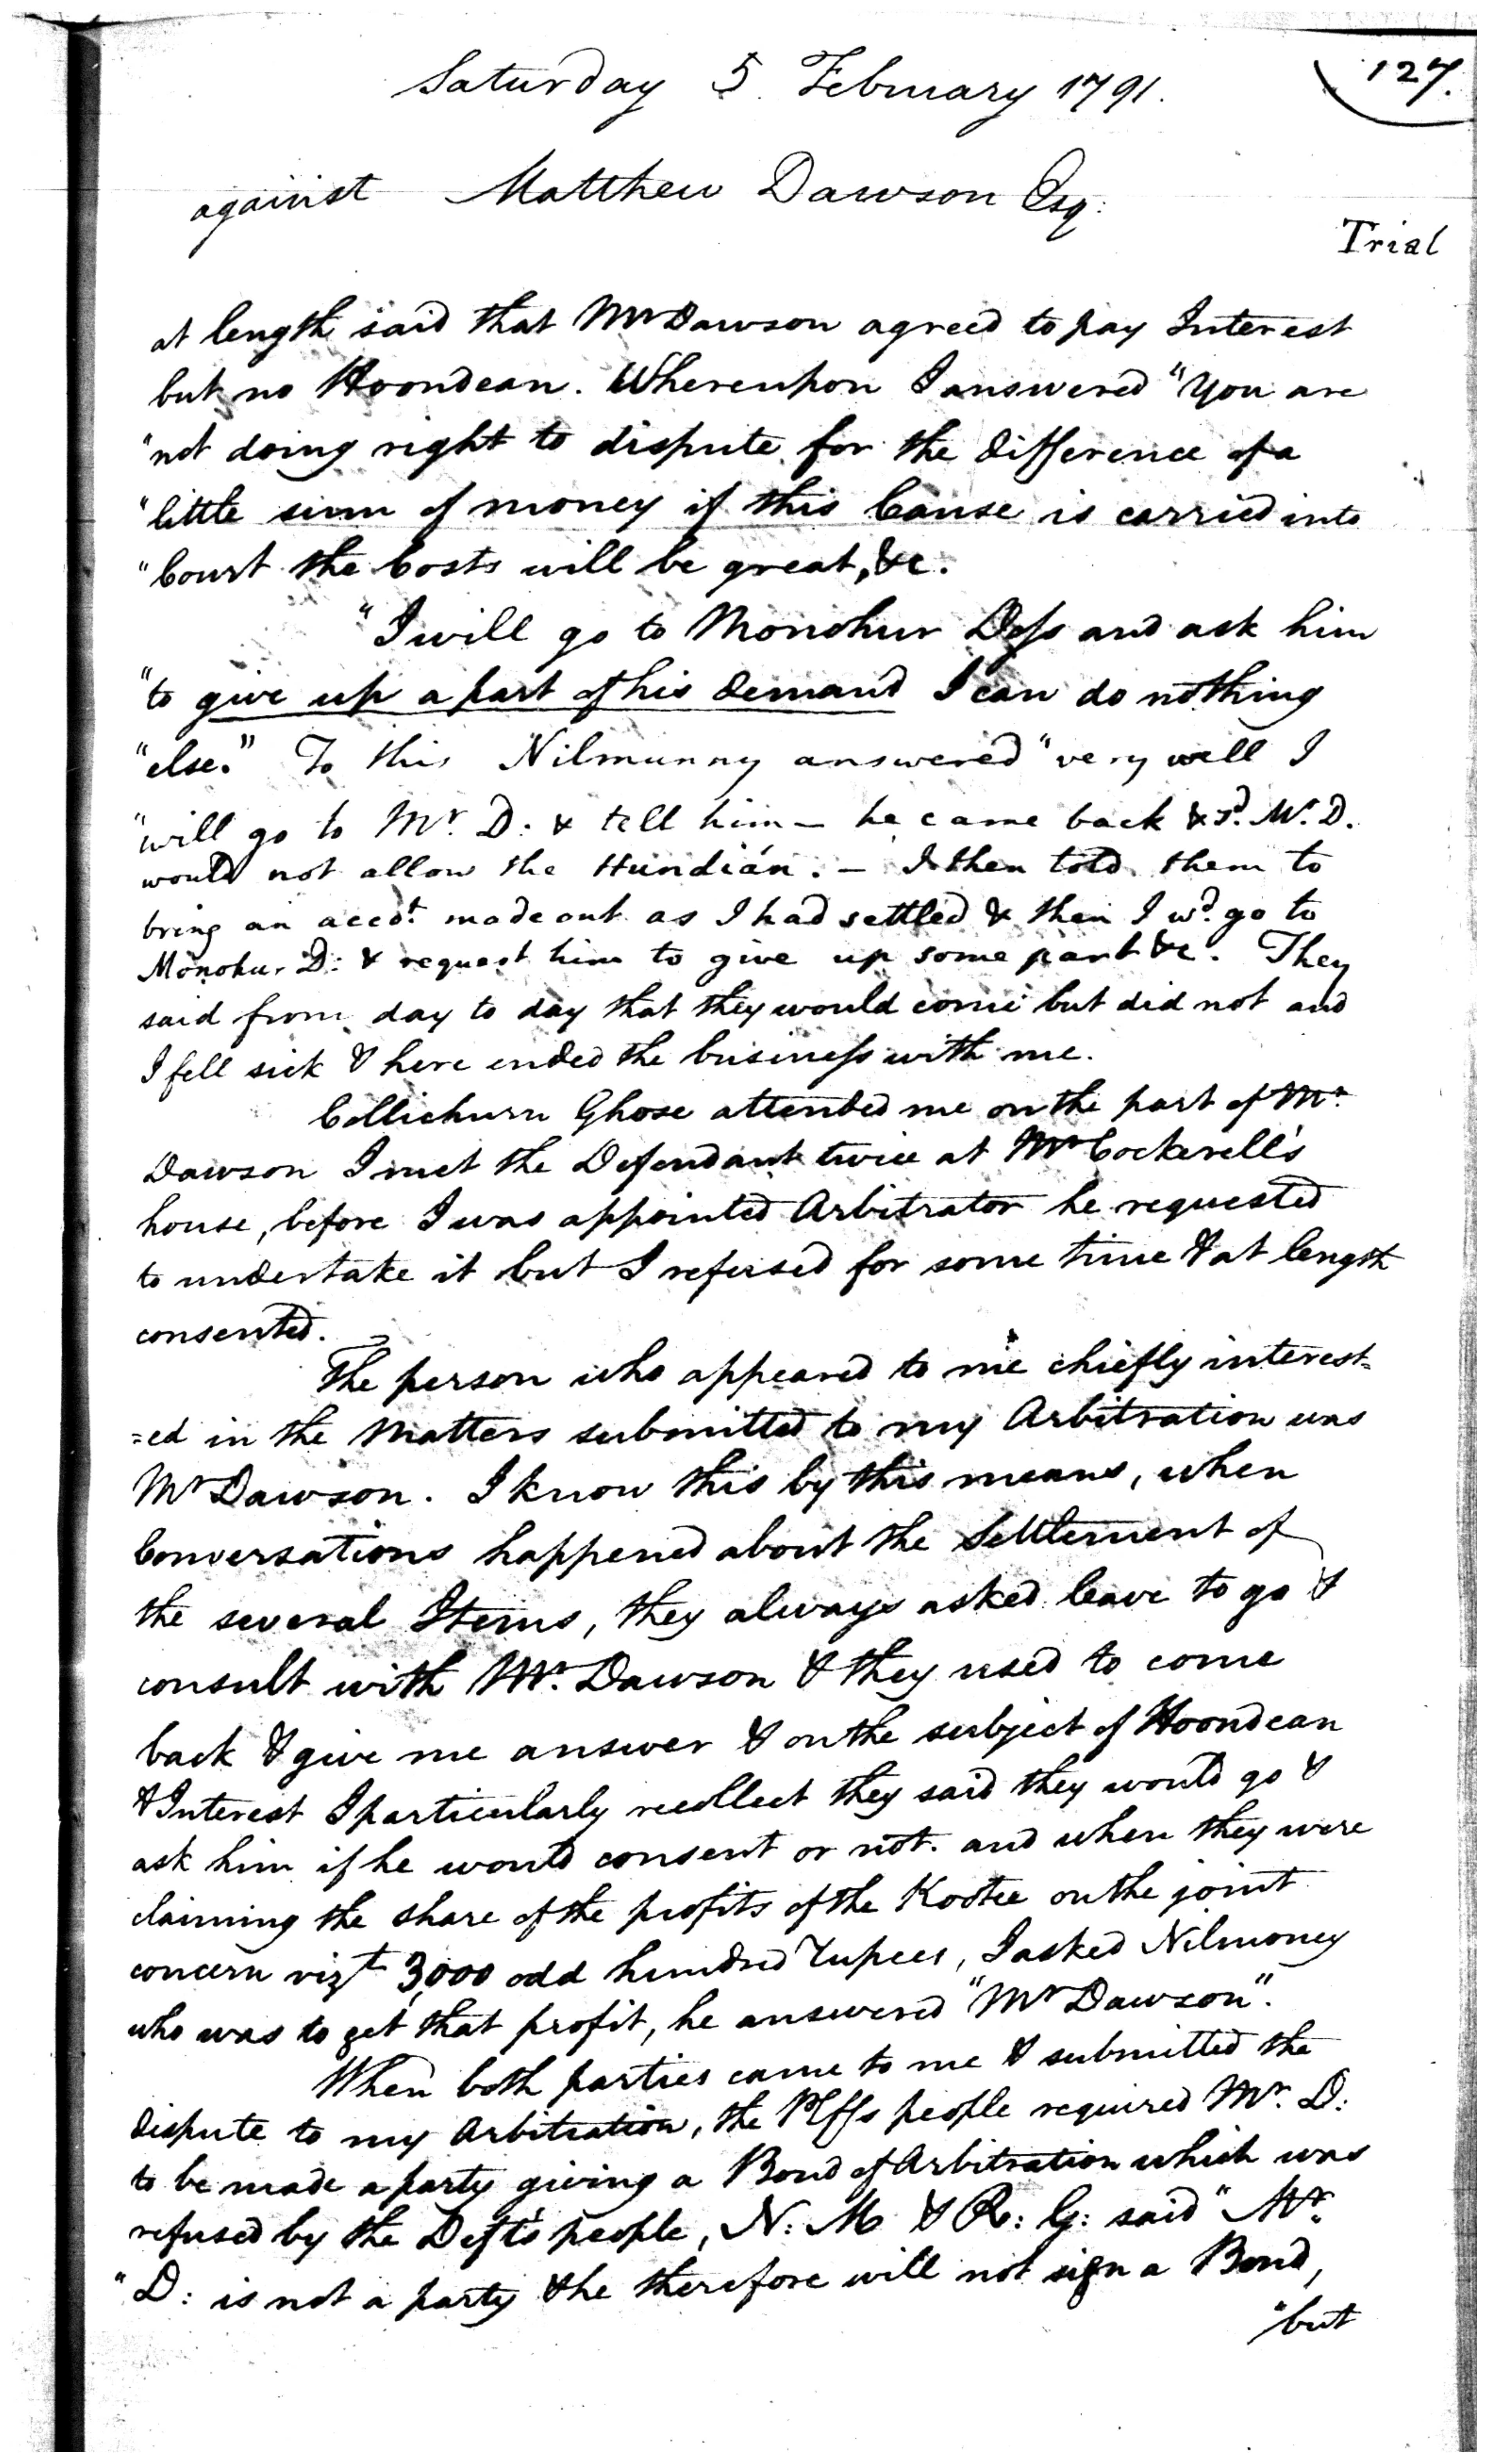 Saturday 5. February 1791.
127.
against Matthew Dawson Esq:
Trial
at length said that Mr Dawson agreed to pay Interest
but no Hoondean. Whereupon I answered "You are
"not doing right to dispute for the difference of a
"little sum of money if this Cause is carried into
"Court the Costs will be great, &c.
"I will go to Monohur Doss and ask him
"to give up a part of his demand I can do nothing
"else." To this Nilmunny answered "very well I
"will go to Mr. D: & tell him – he came back & sd. Mr. D.
would not allow the Hundián. – I then told them to
bring an accot. made out as I had settled & then I wd. go to
Monohur D: & request him to give up some part &c. They
said from day to day that they would come but did not and
I fell sick & here ended the business with me.
Collichurn Ghose attended me on the part of Mr.
Dawson I met the Defendant twice at Mr Cockerell's
house, before I was appointed Arbitrator he requested
to undertake it but I refused for some time & at length
consented.
The person who appeared to me chiefly interest=
=ed in the Matters submitted to my Arbitration was
Mr Dawson. I know this by this means, when
Conversations happened about the Settlement of
the several Items, they always asked leave to go &
consult with Mr. Dawson & they used to come
back & give me answer & on the subject of Hoondean
& Interest I particularly recollect they said they would go &
ask him if he would consent or not. and when they were
claiming the share of the profits of the Kootee on the joint
concern vizt 3,000 odd hundred rupees, I asked Nilmoney
who was to get that profit, he answered "Mr Dawson".
When both parties came to me & submitted the
dispute to my Arbitration, the Plffs people required Mr. D:
to be made a party giving a Bond of Arbitration which was
refused by the Defts people, N: M & R: G: said "Mr.
"D: is not a party & he therefore will not sign a Bond,
"but